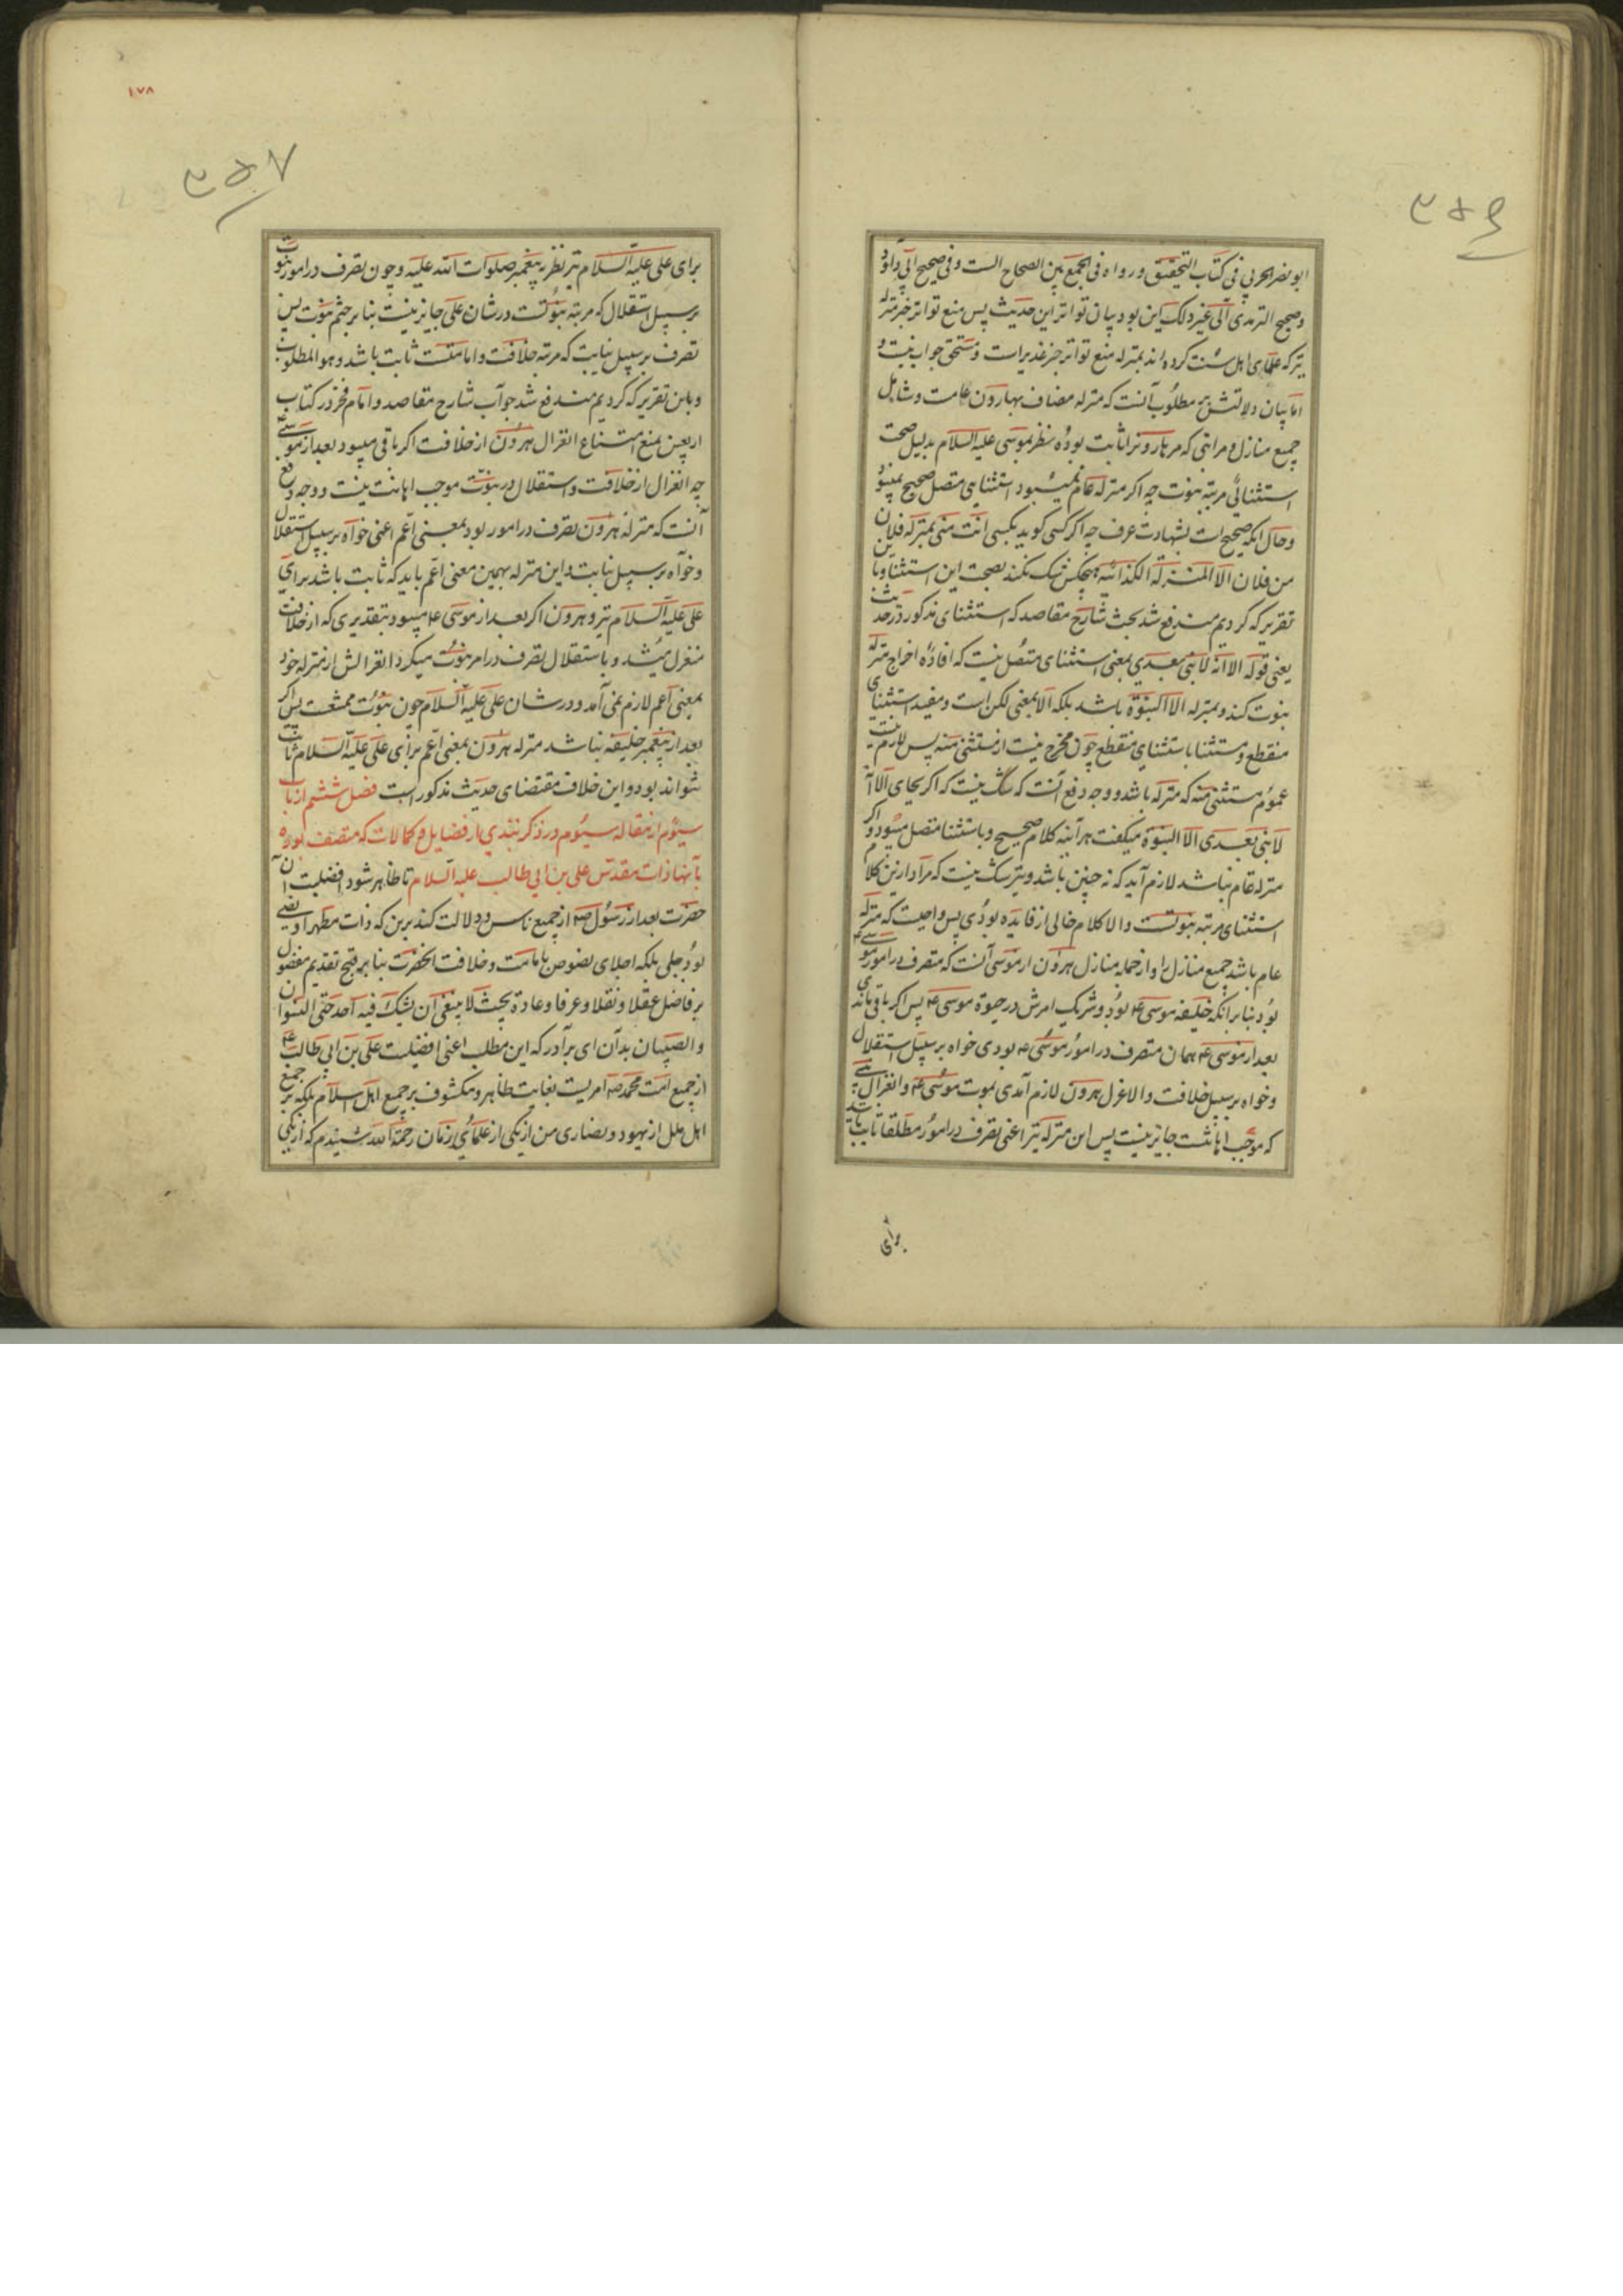 ۳۵۶
ابو نصر الحربی فی کتاب التحقیق و رواه فی الجمع بین الصحاح الست و فی صحیح ابی داود
و صحیح الترمذی الی غیر ذلک این بود بیان تواتر این حدیث پس منع تواتر خبر منزله
نیز که علمای اهل سنت کرده اند بمنزله منع تواتر خبر غدیر است و مستحق جواب نیست و
اما بیان دلالتش بر مطلوب آنست که منزله مضاف بهارون عامست و شامل
جمیع منازل و مراتبی که مر هارونرا ثابت بوده نظر بموسی علیه السلام بدلیل صحت
استثنائی مرتبه نبوت چه اکر منزله عام نمیبود استثنایی متصل صحیح نمیبود
و حال انکه صحیح است بشهادت عرف چه اکر کسی کوید بکسی انت منی بمنزله فلان
من فلان الا المنزلة الکذائیه هیچکس شک نکند بصحت این استثنا و باین
تقریر که کردیم مندفع شد بحث شارح مقاصد که استثنای مذکور در حدیث
یعنی قوله الا انه لا نبی بعدی بمعنی استثنای متصل نیست که افاده اخراج منزله
نبوت کند و بمنزله الا النبوة باشد بلکه الا بمعنی لکن است و مفید استثنای
منقطع و مستثنا باستثنای منقطع چون مخرج نیست از مستثنی منه پس لازم نیست
عموم مستثنی منه که منزله باشد و وجه دفع آنست که شک نیست که اکر بجای الا انه
لا نبی بعدی الا النبوة میکفت هر آینه کلام صحیح و باستثنا متصل میبود و اکر
منزله عام نباشد لازم آید که نه چنین باشد و نیز شک نیست که مراد ازین کلام
استثنای مرتبه نبوتست و الا کلام خالی از فایده بودی پس واجبست که منزله
عام باشد جمیع منازل را و از جمله منازل هرون از موسی آنست که متصرف در امور موسی ع
بود بنا بر انکه خلیفه موسی ع بود و شریک امرش در حیوة موسی ع پس اکر باقی ماندی
بعد از موسی ع همان متصرف در امور موسی ع بودی خواه بر سبیل استقلال
و خواه بر سبیل خلافت و الا عزل هرون لازم آمدی بموت موسی ع و انعزال نبی
که موجب اهانتست جایز نیست پس این منزله نیز اعنی تصرف در امور مطلقا ثابت باشد
برای
۱۷۸
۳۵۷
برای علی علیه السلام نیز نظر به پیغمبر صلوات الله علیه و چون تصرف در امور نبوت
بر سبیل استقلال که مرتبه نبوتست در شان علی جایز نیست بنا بر ختم نبوت پس
تصرف بر سبیل نیابت که مرتبه خلافت و امامتست ثابت باشد و هو المطلوب
و باین تقریر که کردیم مندفع شد جواب شارح مقاصد و امام فخر در کتاب
اربعین بمنع امتناع انعزال هرون از خلافت اکر باقی میبود بعد از موسی ع
چه انعزال از خلافت و استقلال در نبوت موجب اهانت نیست و وجه دفع
آنست که منزله هرون تصرف در امور بود بمعنی اعم اعنی خواه بر سبیل استقلال
و خواه بر سبیل نیابت و این منزله بهمین معنی اعم باید که ثابت باشد برای
علی علیه السلام نیز و هرون اکر بعد از موسی ع میبود بتقدیری که از خلافت
منعزل میشد و باستقلال تصرف در امر نبوت میکرد انعزالش از منزله خود
بمعنی اعم لازم نمی آمد و در شان علی علیه السلام چون نبوت ممتنعست پس اکر
بعد از پیغمبر خلیفه نباشد منزله هرون بمعنی اعم برای علی علیه السلام ثابت
نتواند بود و این خلاف مقتضای حدیث مذکور است فصل ششم از باب
سیوم از مقاله سیوم در ذکر نبذی از فضایل و کمالات که متصف بوده
بآنها ذات مقدس علی بن ابی طالب علیه السلام تا ظاهر شود افضلیت آن
حضرت بعد از رسول ص از جمیع ناس و دلالت کند برین که ذات مطهر او نصی
بود جلی بلکه اجلای نصوص بامامت و خلافت انحضرت بنا بر قبح تقدیم مفضول
بر فاضل عقلا و نقلا و عرفا و عادة بحیث لا ینبغی ان یشک فیه احد حتی النسوان
و الصبیان بدان ای برادر که این مطلب اعنی افضلیت علی بن ابی طالب ع
از جمیع امت محمد ص امریست بغایت ظاهر و مکشوف بر جمیع اهل اسلام بلکه بر جمیع
اهل ملل از یهود و نصاری من از یکی از علمای زمان رحمة الله شنیدم که از یکی